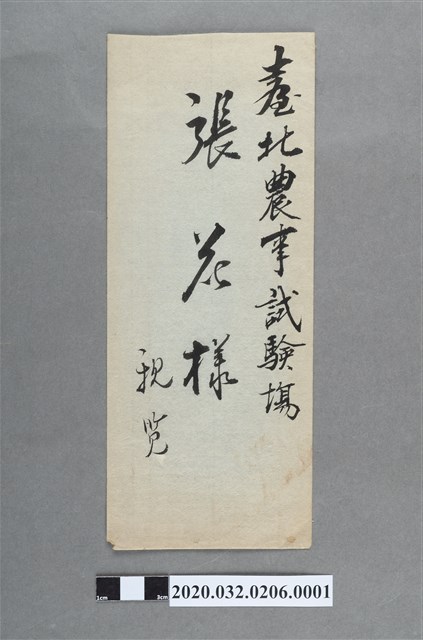 臺北農事試驗場
張花樣
親覧
1cm
3cm
2020.032.0206.0001